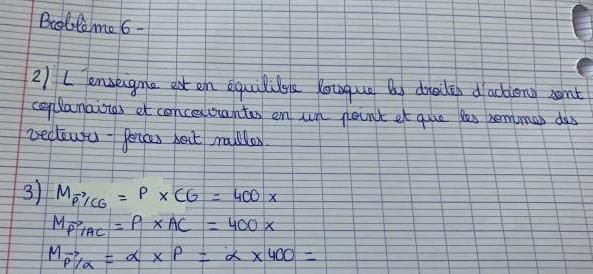 Problème 6 -
2) L'enseigne est en équilibre lorsque les droites d'actions sont
coplanaires et concourantes en un point et que les sommes des
vecteurs - forces soit nulles.
3) M P⃗/CG = P × CG = 400 ×
M P⃗/AC = P × AC = 400 ×
M P⃗/α = α × P = α × 400 =